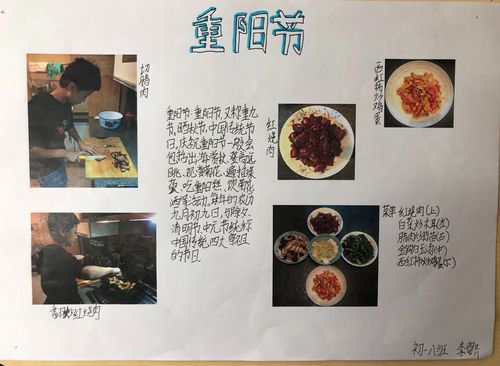 重阳节
切腊肉
重阳节:重阳节,又称重九
节,晒秋节,中国传统节
日。庆祝重阳节一般会
包括出游赏秋、登高远
眺、观赏菊花、遍插茱
萸、吃重阳糕、饮菊花
酒等活动,每年的农历
九月初九日,与除夕、
清明节、中元节统称
中国传统四大祭祖
的节日。
红烧肉
西红柿炒鸡蛋
菜单 红烧肉(上)
白菜炒木耳(左)
西红柿炒鸡蛋(下)
红烧肉
初一八班